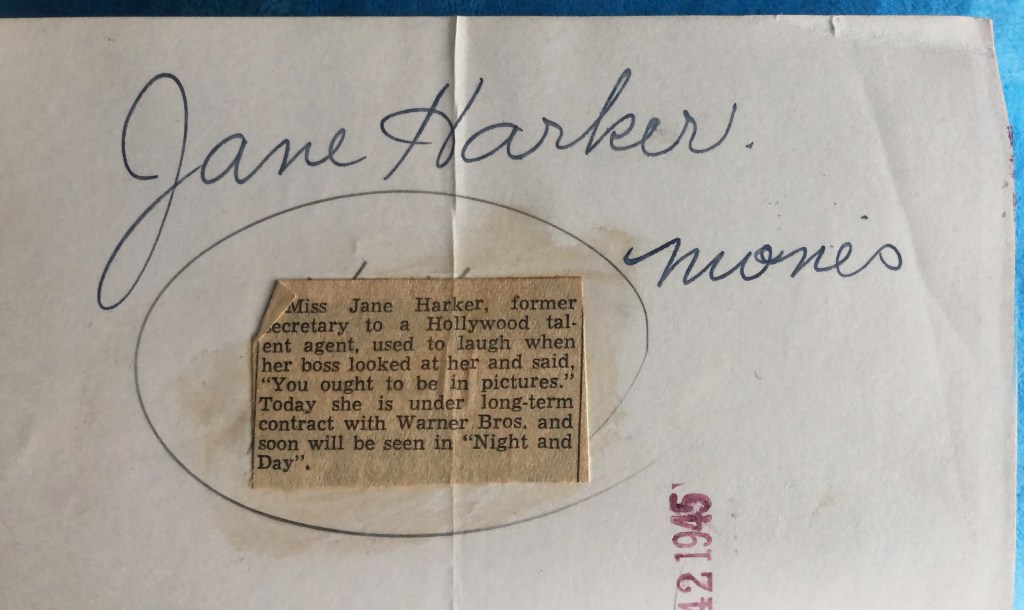 Jane Harker.
movies
Miss Jane Harker, former
secretary to a Hollywood tal-
ent agent, used to laugh when
her boss looked at her and said,
"You ought to be in pictures."
Today she is under long-term
contract with Warner Bros. and
soon will be seen in "Night and
Day".
2 1945